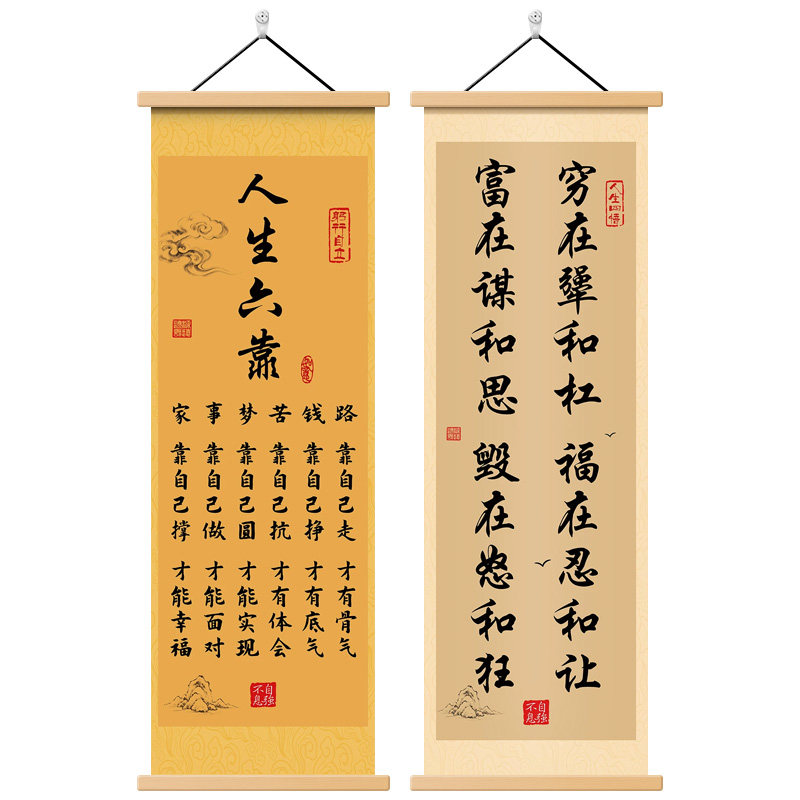 人生六靠
躬行自立
路 靠自己走 才有骨气
钱 靠自己挣 才有底气
苦 靠自己抗 才有体会
梦 靠自己圆 才能实现
事 靠自己做 才能面对
家 靠自己撑 才能幸福
自強不息
人生四悟
穷在犟和杠 福在忍和让
富在谋和思 毁在怒和狂
自強不息